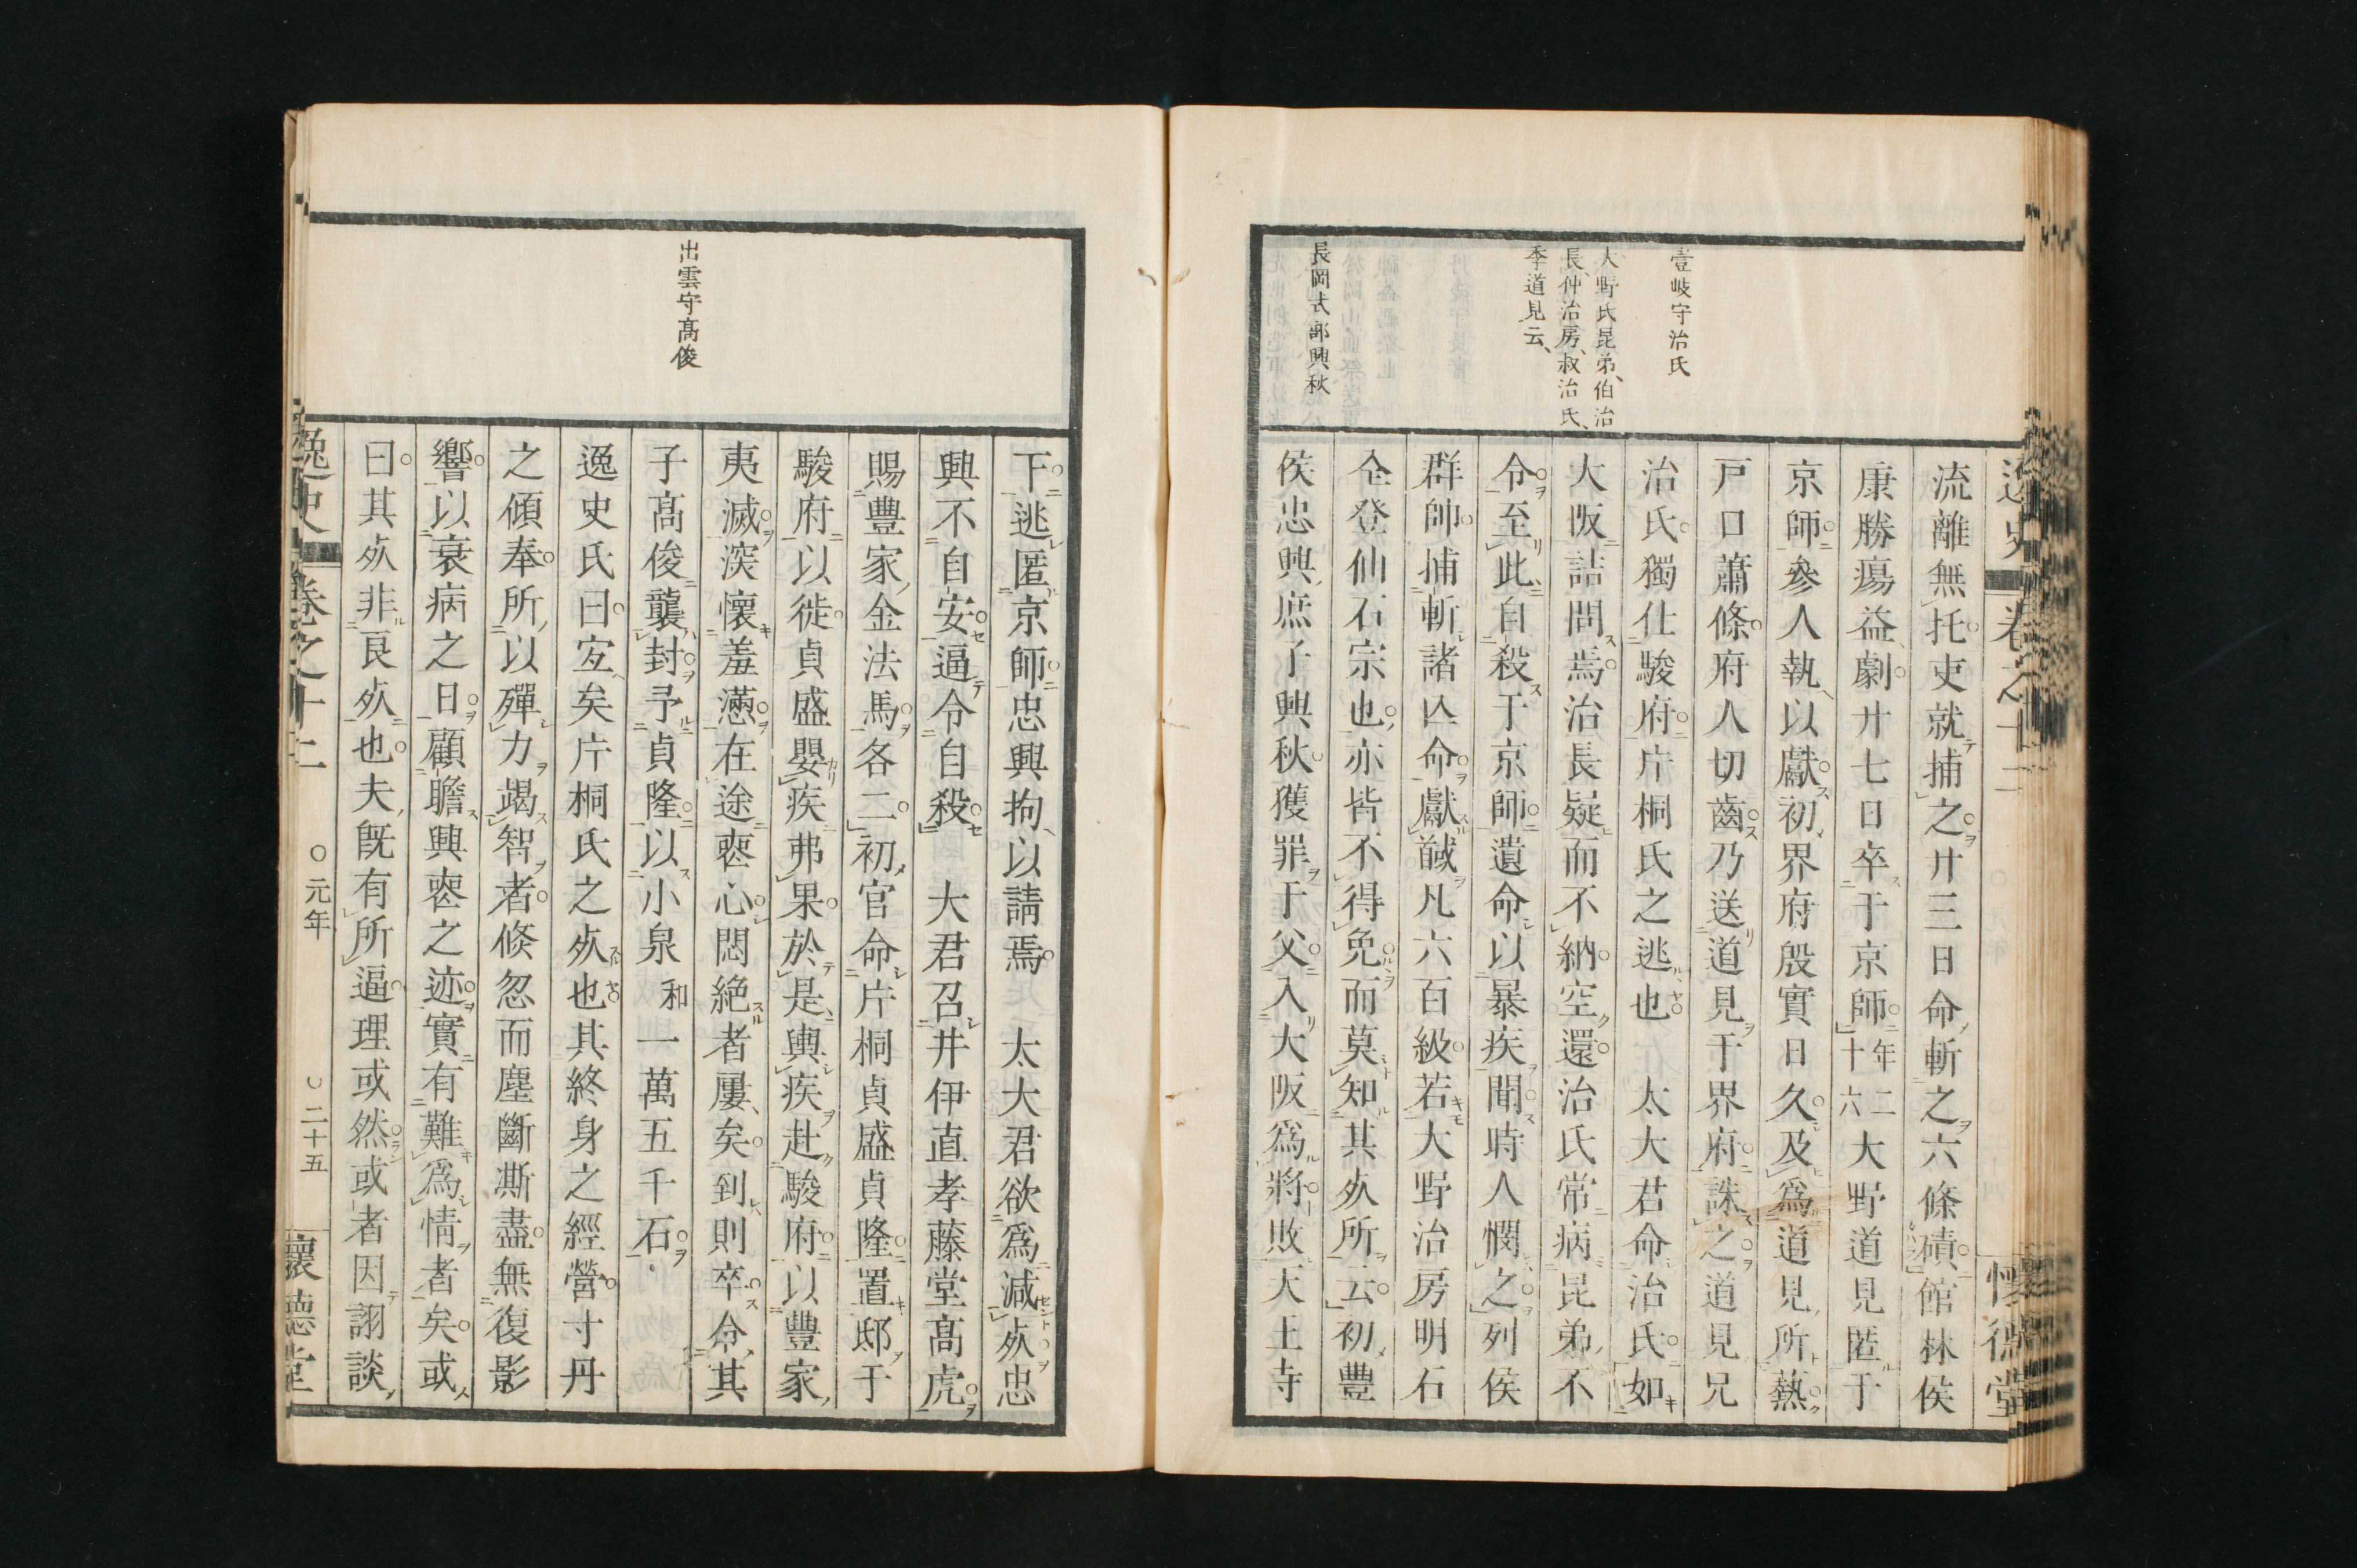 壹岐守治氏
大野氏昆弟、伯治
長、仲治房、叔治氏、
季道見云、
長岡式部興秋
逸史 卷之十二 懷德堂
流離無托吏就捕之廿三日命斬之六條磧館林侯
康勝瘍益劇廿七日卒于京師年二十六大野道見匿于
京師參人執以獻初界府殷實日久及爲道見所爇
戸口蕭條府人切齒乃送道見于界府誅之道見兄
治氏獨仕駿府片桐氏之逃也 太大君命治氏如
大阪詰問焉治長疑而不納空還治氏常病昆弟不
令至此自殺于京師遺命以暴疾聞時人憫之列侯
群帥捕斬諸亾命獻馘凡六百級若大野治房明石
全登仙石宗也亦皆不得免而莫知其死所云初豐
侯忠興庶子興秋獲罪于父入大阪爲將敗天王寺
出雲守高俊
下逃匿京師忠興拘以請焉 太大君欲爲減死忠
興不自安逼令自殺 大君召井伊直孝藤堂高虎
賜豐家金法馬各二初官命片桐貞盛貞隆置邸于
駿府以徙貞盛嬰疾弗果於是輿疾赴駿府以豐家
夷滅深懷羞懣在途喪心悶絶者屢矣到則卒令其
子高俊襲封予貞隆以小泉和一萬五千石
逸史氏曰宜矣片桐氏之死也其終身之經營寸丹
之傾奉所以殫力竭智者倐忽而塵斷澌盡無復影
響以衰病之日顧瞻興喪之迹實有難爲情者矣或
曰其死非良死也夫既有所逼理或然或者因詡談
逸史 卷之十二 ○元年 ○二十五 懷德堂